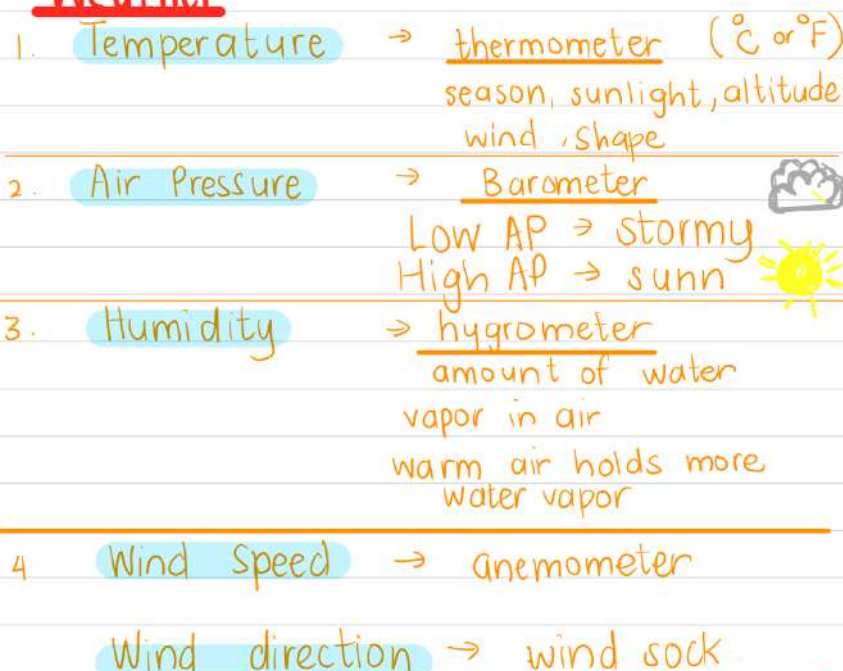 1. Temperature → thermometer (°C or °F)
season, sunlight, altitude
wind, shape
2. Air Pressure → Barometer
Low AP → stormy
High AP → sunn
3. Humidity → hygrometer
amount of water
vapor in air
warm air holds more
water vapor
4 Wind Speed → anemometer
Wind direction → wind sock